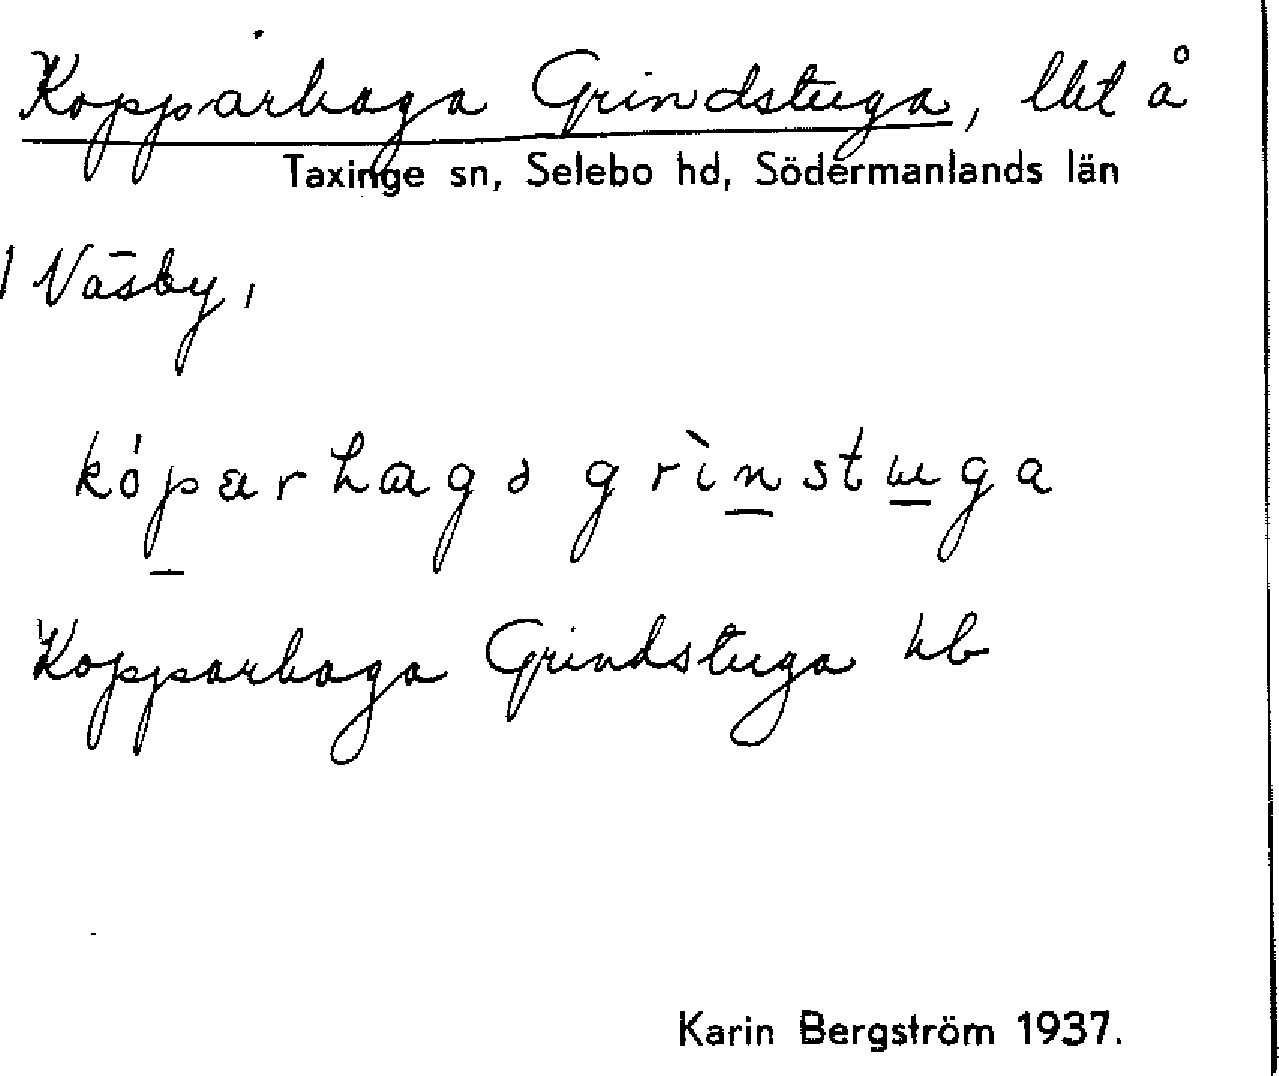 Kopparhaga Grindstuga, lht å
Taxinge sn, Selebo hd, Södermanlands län
1 Väsby,
kóparhagə grìnstuga
Kopparhaga Grindstuga hb
Karin Bergström 1937.